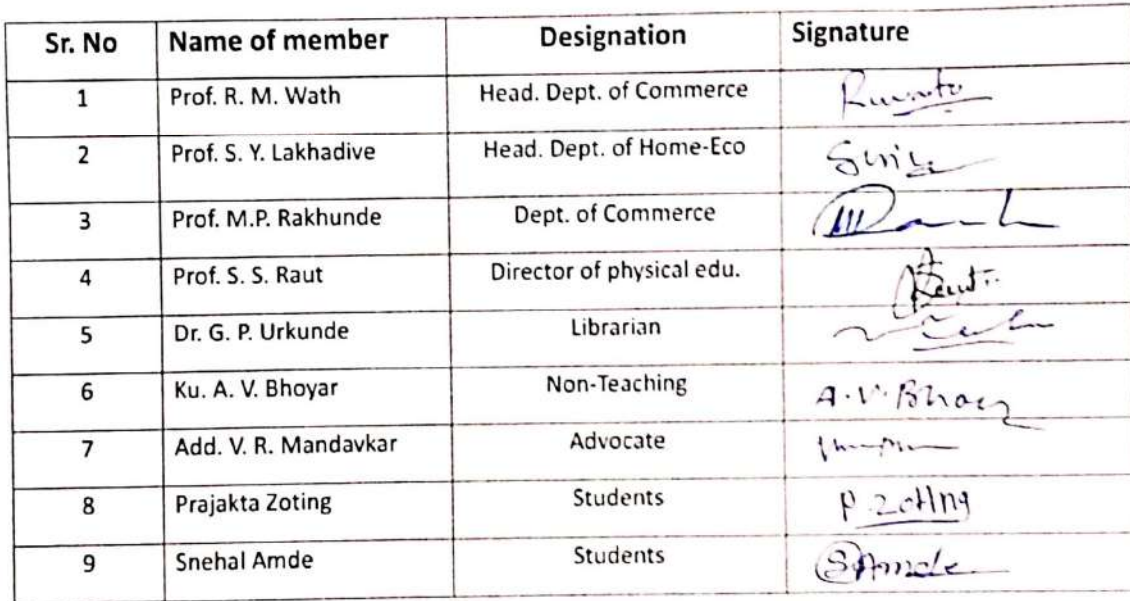 Sr. No Name of member Designation Signature
1 Prof. R. M. Wath Head. Dept. of Commerce
2 Prof. S. Y. Lakhadive Head. Dept. of Home-Eco
3 Prof. M.P. Rakhunde Dept. of Commerce
4 Prof. S. S. Raut Director of physical edu.
5 Dr. G. P. Urkunde Librarian
6 Ku. A. V. Bhoyar Non-Teaching A.V.
7 Add. V. R. Mandavkar Advocate
8 Prajakta Zoting Students P. Zoting
9 Snehal Amde Students SAmde